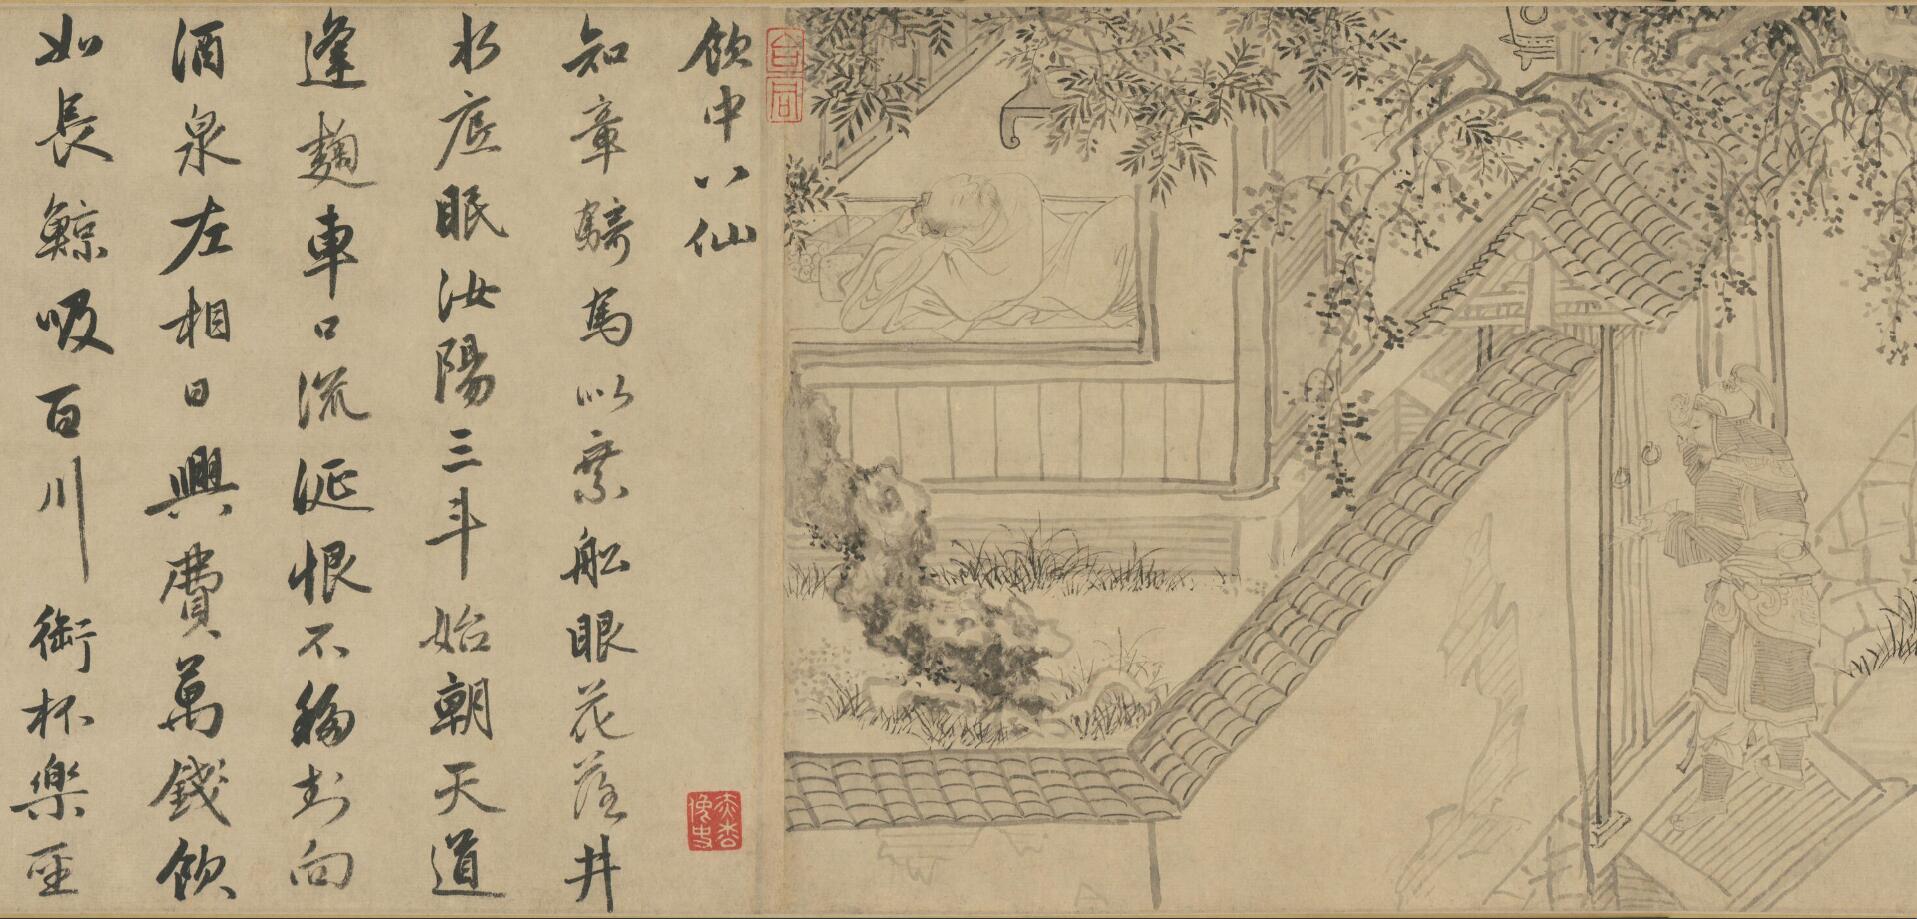 飲中八仙
知章騎馬以乘舩眼花落井
水底眠汝陽三斗始朝天道
逢麴車口流涎恨不移封向
酒泉左相日興費萬錢飲
如長鯨吸百川銜杯樂聖